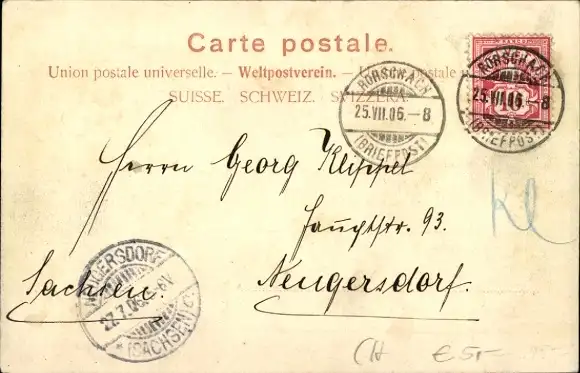 Carte postale.
Union postale universelle. — Weltpostverein. — postale
SUISSE. SCHWEIZ. SVIZZERA.
RORSCHACH
25.VII.06.—8
(BRIEFPOST)
RORSCHACH
25.VII.06.—8
(BRIEFPOST)
Herrn Georg Klippel
Hauptstr. 93.
Neugersdorf.
Sachsen.
GERSDORF
27.7.06
* (SACHSEN) c
Kl
CH € 5.-